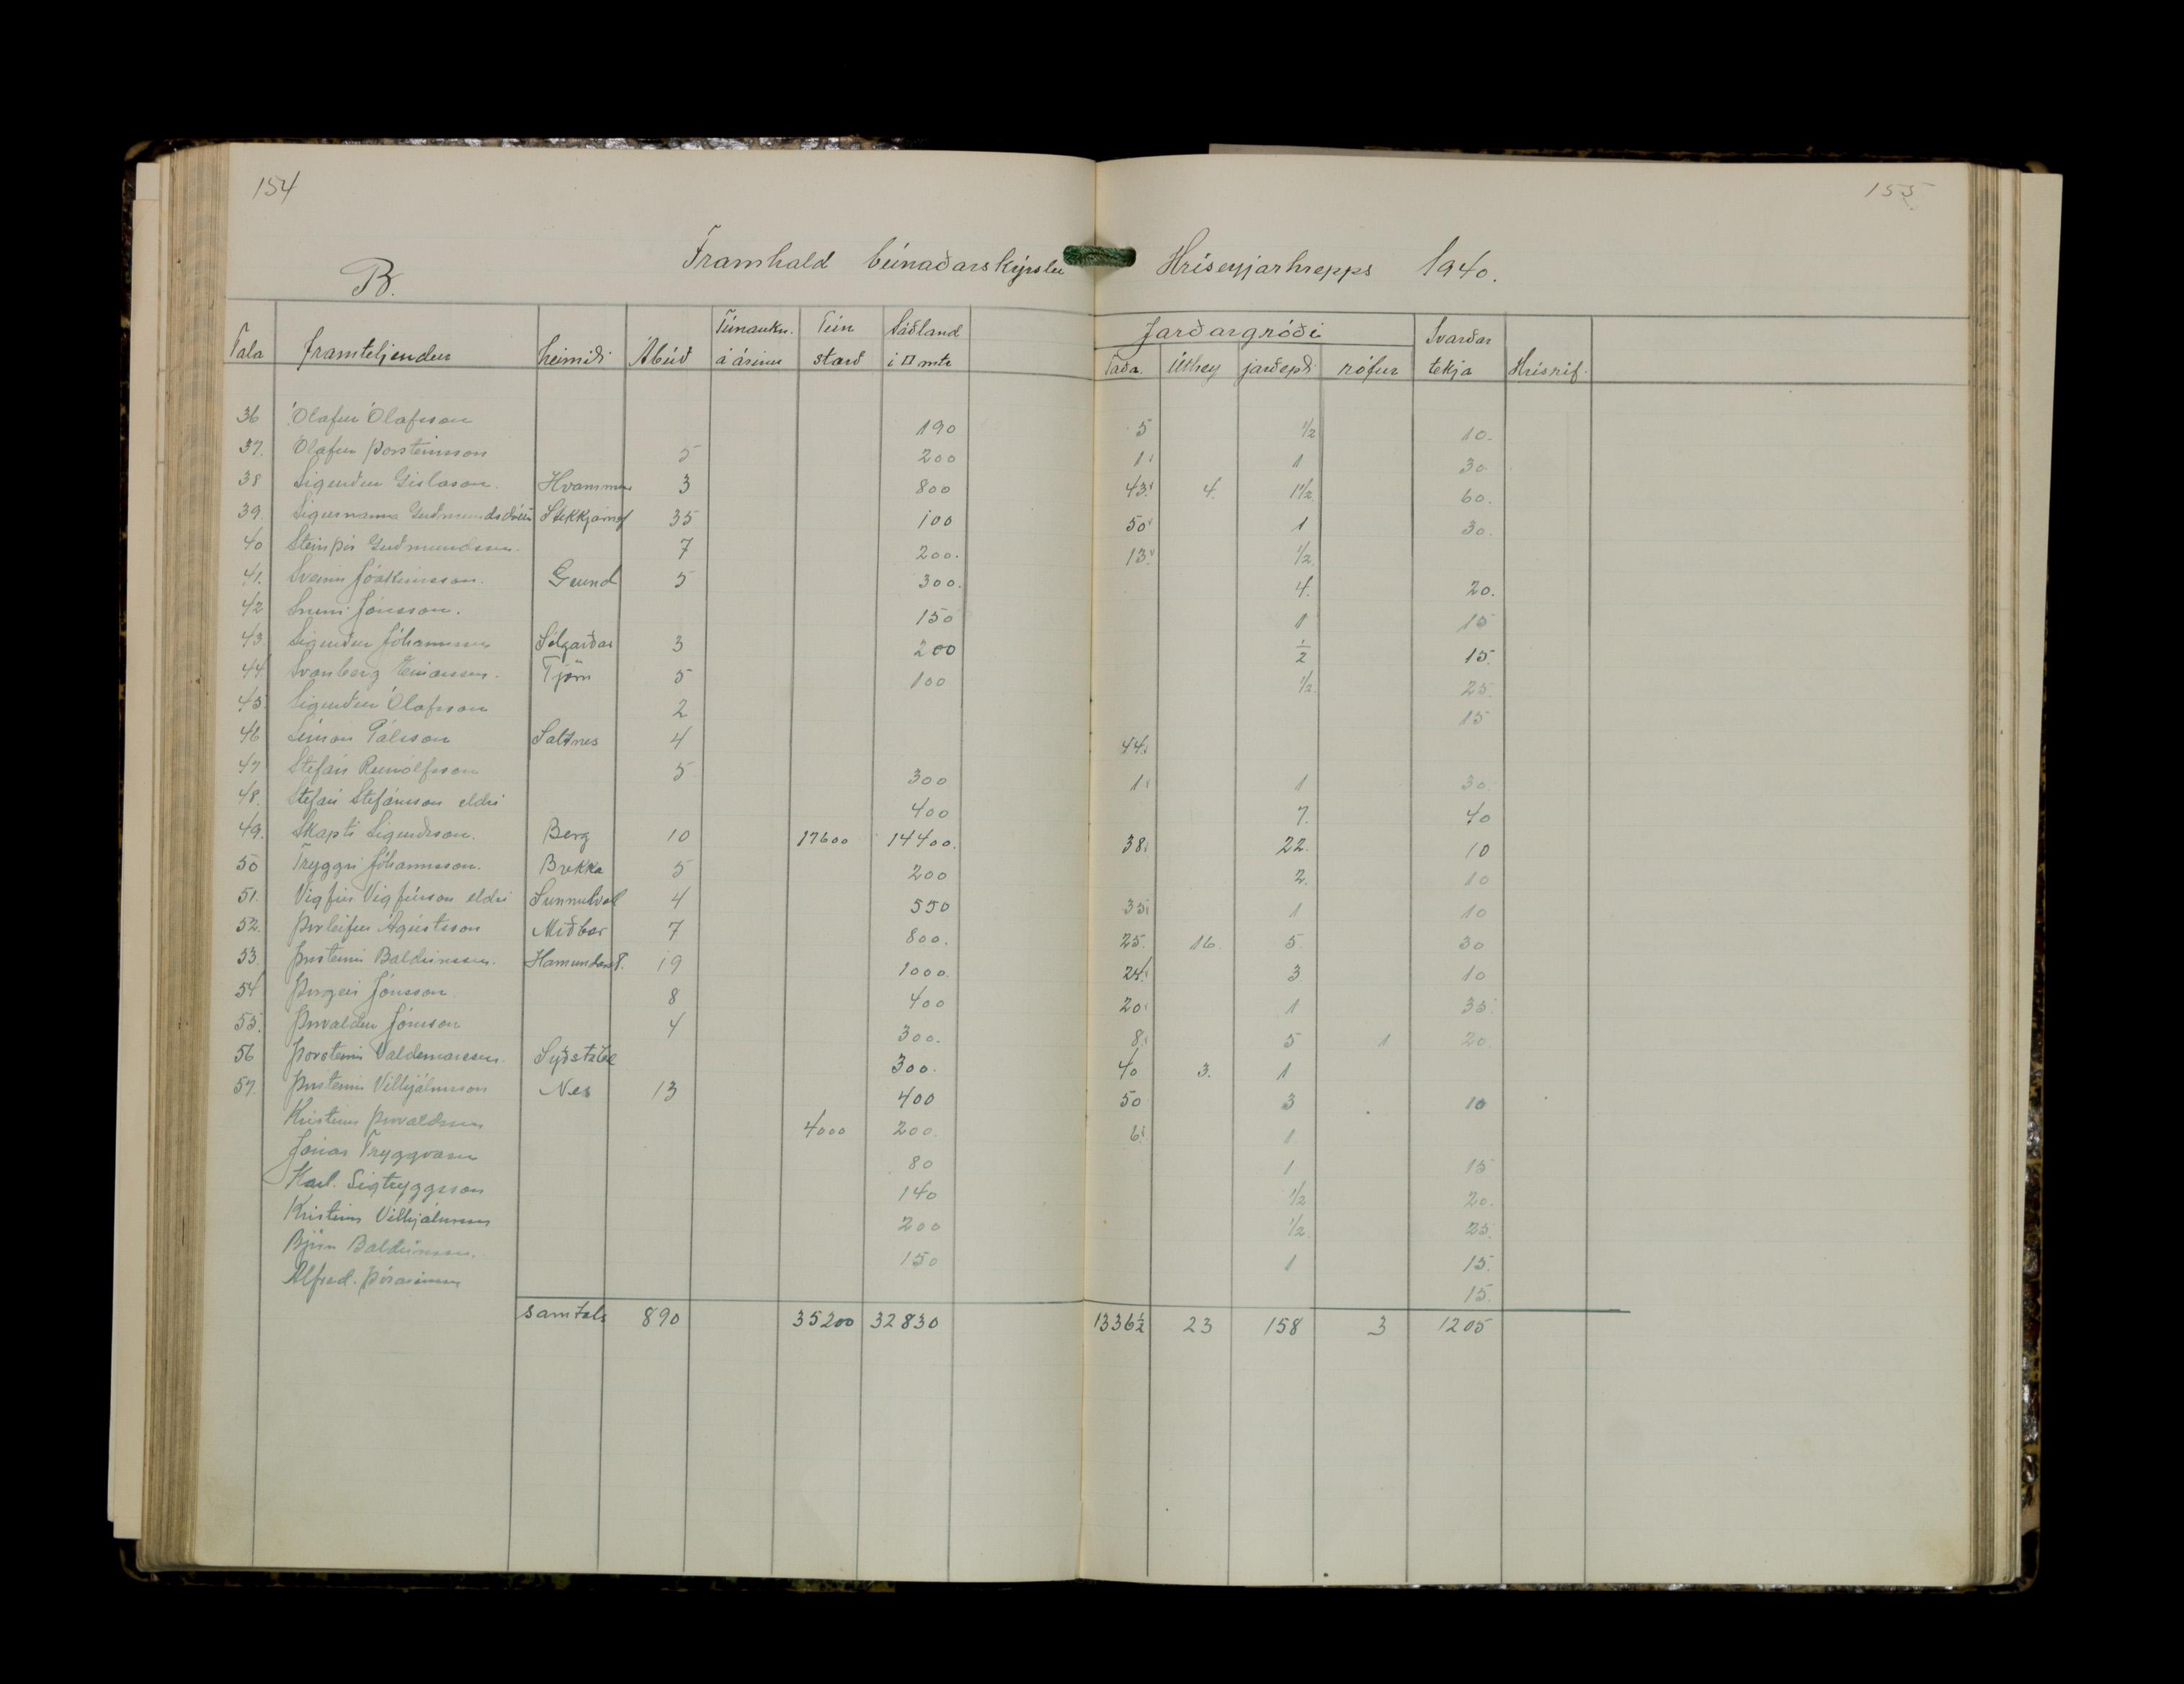 154
155
B. Framhald búnaðarskýrslu Hríseyjarhrepps 1940.
Tala framteljendur heimili Ábúð Túnaukn. á árinu Tún stærð Sáðland i □ mtr Jarðargróði Taða Úthey jarðepli rófur Svarðar tekja Hrísrif
36 Ólafur Ólafsson 190 5 1/2 10.
37. Ólafur Þorsteinsson 5 200 1 1 30
38 Sigurður Gíslason. Hvammur 3 800 43 4. 1 1/2 60.
39. Sigurnanna Guðmundsdóttir 35 100 50 1 30.
40 Steinþór Guðmundsson. 7 200. 13 1/2
41. Sveinn Jóakimsson. Grund 5 300. 4. 20.
42 Jónsson. 150 1 15
43. Sigurður Jóhannsson Sólgarðar 3 200 1/2 15.
44. Svanberg Einarsson. Tjörn 5 100 1/2. 25.
45. Sigurður Ólafsson 2 15
46 Símon Pálsson Saltnes 4 44.
47 Stefán Runólfsson 5 300 1 1 30.
48. Stefán Stefánsson eldri 400 7. 40
49. Skapti Sigurðsson. Berg 10 17600 14400. 38. 22. 10
50 Tryggvi Jóhannsson. Brekka 5 200 2. 10
51. Vigfús Vigfússon eldri Sunnuhvoll 4 550 35 1 10
52. Þorleifur Ágústsson Miðbær 7 800. 25. 16. 5. 30
53. Þorsteinn Baldvinsson. 19 1000. 24 3 10
54 Þorgeir Jónsson 8 400 20 1 35
55. Þorvaldur Jónsson 4 300. 8. 5 1 20.
56 Þorsteinn Valdemarsson. 300. 40 3. 1
57. Þorsteinn Vilhjálmsson Nes 13 400 50 3 10
Kristinn Þorvaldsson 4000 200. 6 1
Jónas Tryggvason 80 1 15
Karl. Sigtryggsson 140 1/2 20.
Kristinn Vilhjálmsson 200 1/2. 25.
Björn Baldvinsson. 150 1 15.
Alfred. Þórarinsson 15.
samtals 890 35200 32830 1336 1/2 23 158 3 1205